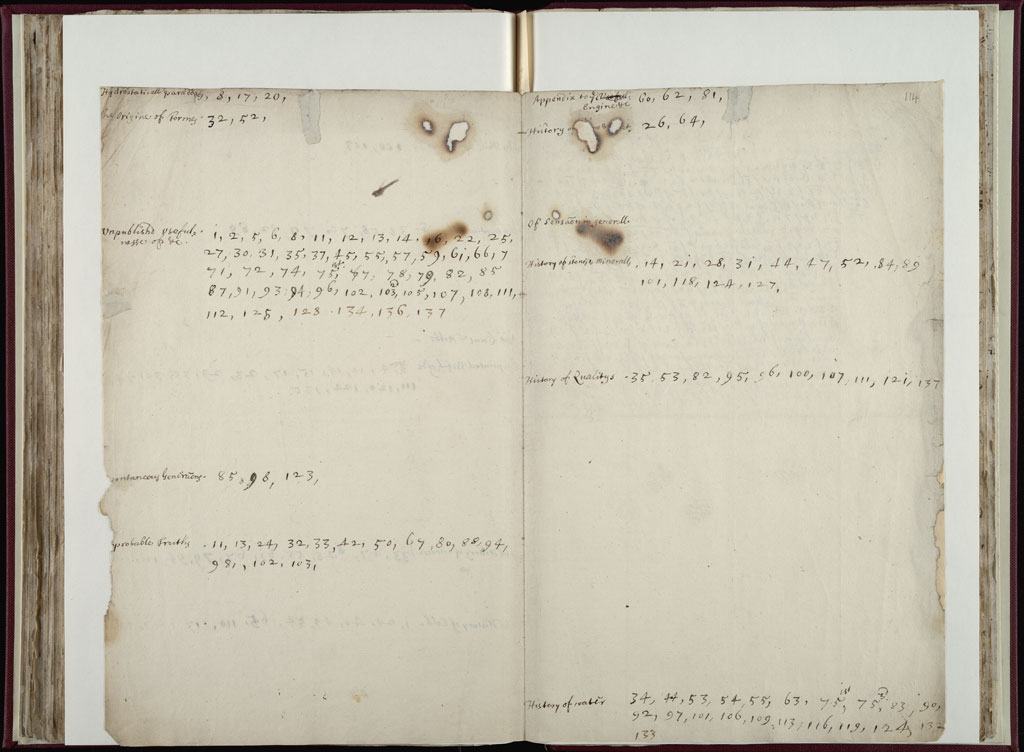 Hydrostaticall paradoxes, 8, 17, 20,
Origine of Formes. 32, 52,
Unpublishd Usefull- 1, 2, 5, 6, 8, 11, 12, 13, 14, 16, 22, 25,
nesse op &c. 27, 30, 31, 35, 37, 45, 55, 57, 59, 61, 66, 7
71, 72, 74, 75, 77, 78, 79, 82, 85
87, 91, 93, 94, 96, 102, 103, 105, 107, 108, 111,
112, 125, 128, 134, 136, 137
85, 98, 123,
probable Truths . 11, 13, 24, 32, 33, 42, 50, 67, 80, 88, 94,
98, 102, 103,
114
Appendix to 60, 62, 81,
Engine &c
History 26, 64,
Of Sensation in generall
History of Mineralls . 14, 21, 28, 31, 44, 47, 52, 84, 89
101, 118, 124, 127,
History of Qualitys . 35, 53, 82, 95, 96, 100, 107, 111, 121, 137
History of water 34, 44, 53, 54, 55, 63, 75 1st, 75 2d, 83, 90,
92, 97, 101, 106, 109, 113, 116, 119, 124, 132
133